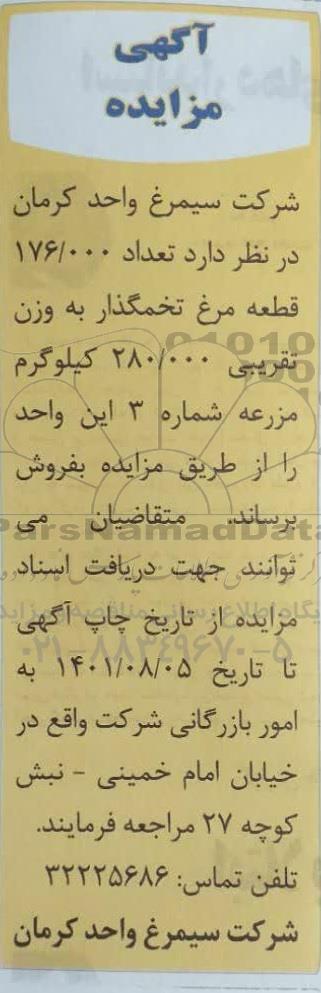 آگهی
مزایده
شرکت سیمرغ واحد کرمان
در نظر دارد تعداد ۱۷۶/۰۰۰
قطعه مرغ تخمگذار به وزن
تقریبی ۲۸۰/۰۰۰ کیلوگرم
مزرعه شماره ۳ این واحد
را از طریق مزایده بفروش
برساند. متقاضیان می
ParsNamadData
توانند جهت دریافت اسناد
مزایده از تاریخ چاپ آگهی
پایگاه اطلاع رسانی مناقصه مزایده
۰۲۱-۸۸۳۴۹۶۷۰-۵
تا تاریخ ۱۴۰۱/۰۸/۰۵ به
امور بازرگانی شرکت واقع در
خیابان امام خمینی - نبش
کوچه ۲۷ مراجعه فرمایند.
تلفن تماس: ۳۲۲۲۵۶۸۶
شرکت سیمرغ واحد کرمان